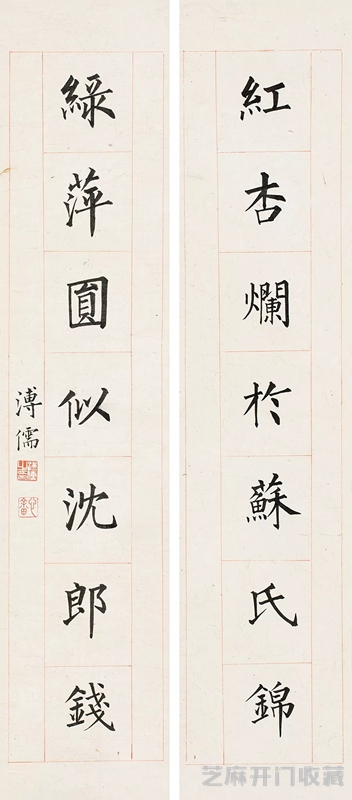 紅杏爛於蘇氏錦
綠萍圓似沈郎錢
溥儒
芝麻开门收藏